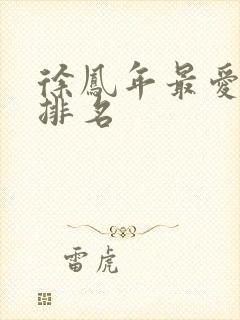 徐鳳年最愛
排名
雷虎